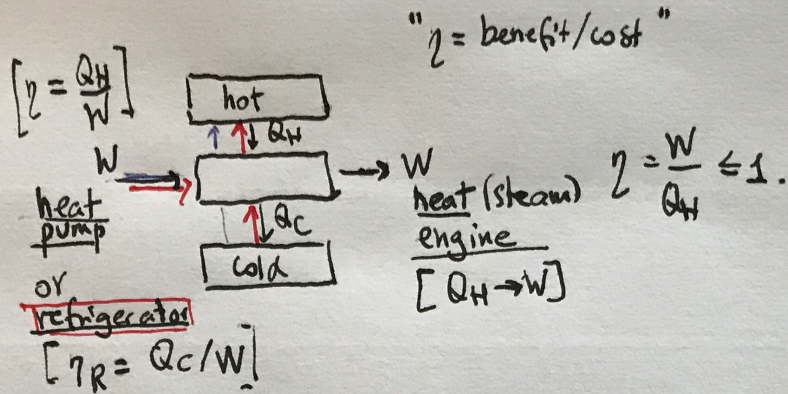 "η = benefit/cost"
[η = QH/W]
hot
QH
W
W
heat
pump
QC
cold
heat (steam)
engine
[QH→W]
η = W/QH ≤ 1.
or
refrigerator
[ηR = QC/W]